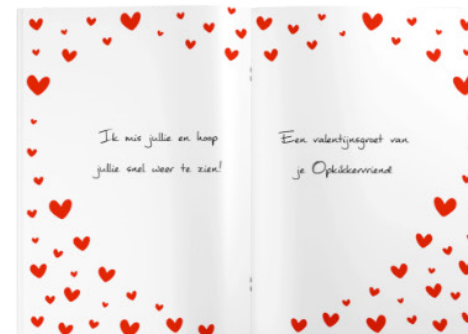 Ik mis jullie en hoop
jullie snel weer te zien!
Een valentijnsgroet van
je Opkikkervriend